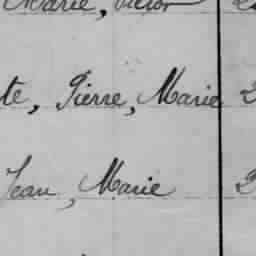 Marie, Victor
te, Pierre, Marie 2
Jean, Marie 2